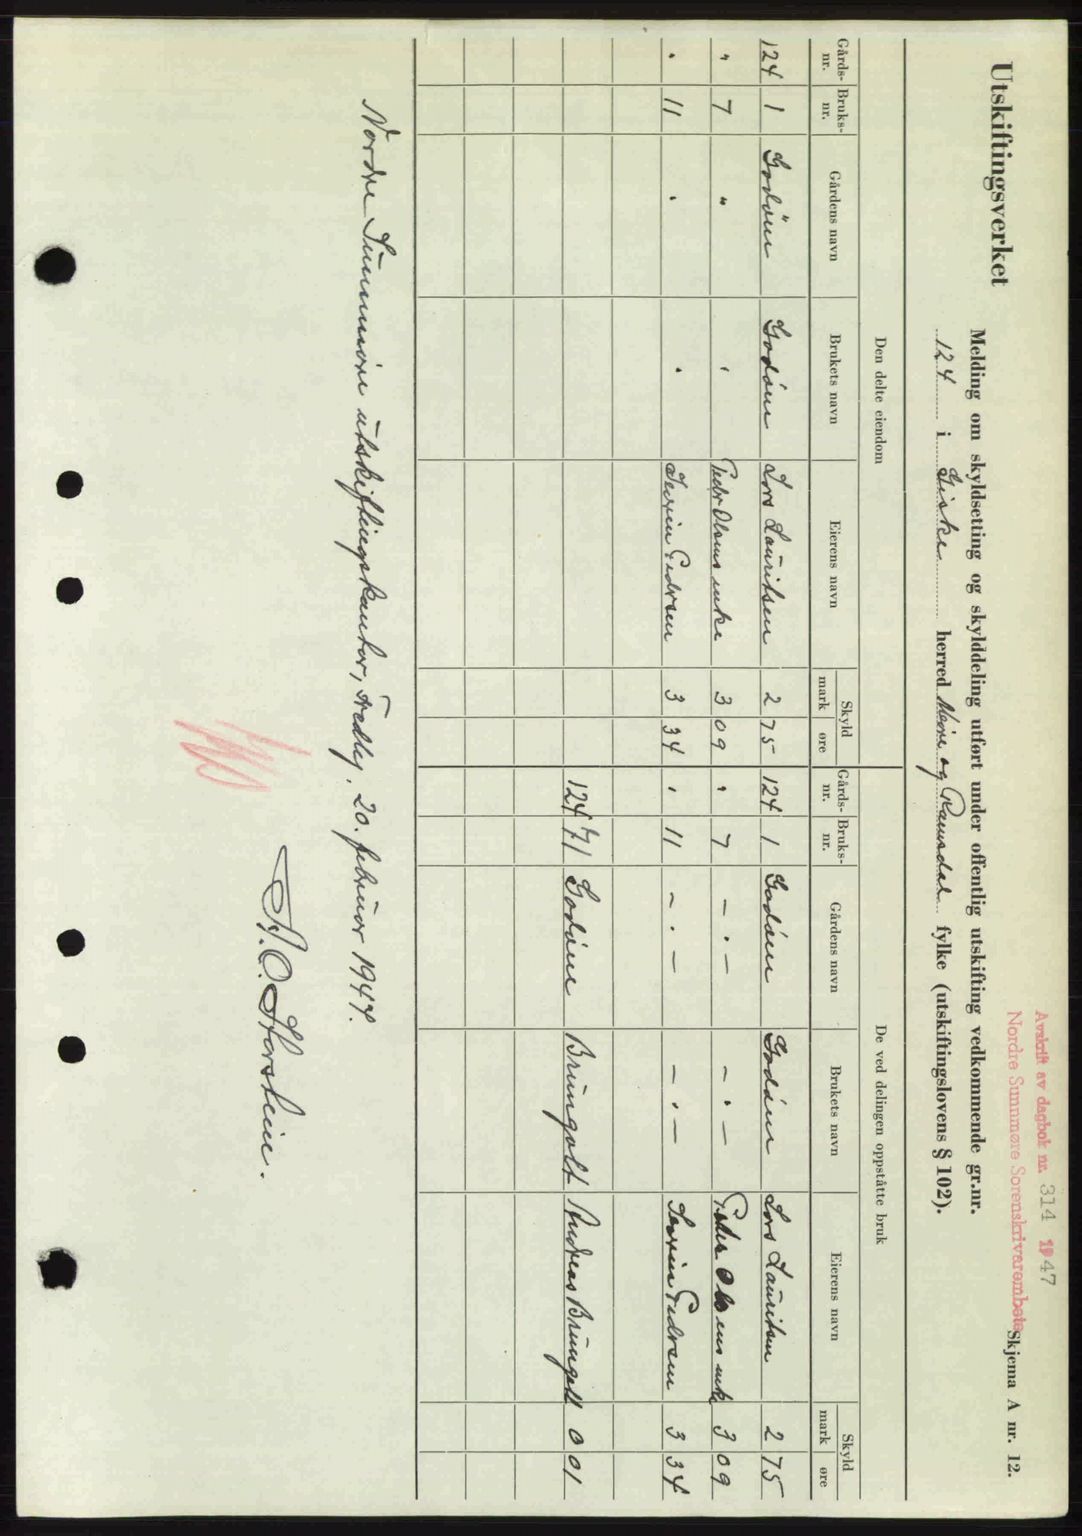 Avskrift av dagbok nr. 314 1947
Nordre Sunnmøre Sorenskriverembete
Skjema A nr. 12.
Utskiftingsverket
Melding om skyldsetting og skylddeling utført under offentlig utskifting vedkommende gr.nr.
124 i Giske herred Møre og Romsdal fylke (utskiftingslovens § 102).
Den delte eiendom De ved delingen oppståtte bruk
Gårds- nr. Bruks- nr. Gårdens navn Brukets navn Eierens navn Skyld mark øre Gårds- nr. Bruks- nr. Gårdens navn Brukets navn Eierens navn Skyld mark øre
124 1 Godöin Godöin Lars Lauritsen 2 75 124 1 Godöin Godöin Lars Lauritsen 2 75
" 7 " " Peder Olsens enke 3 09 " 7 - " - - " - Peder Olsens enke 3 09
" 11 " " Severin Pedersen 3 34 " 11 - " - - " - Severin Pedersen 3 34
124 71 Godöin Brungolt Andreas Brungolt 0 01
Nordre Sunnmöre utskiftingskontor, Fredly, 20. februar 1947.